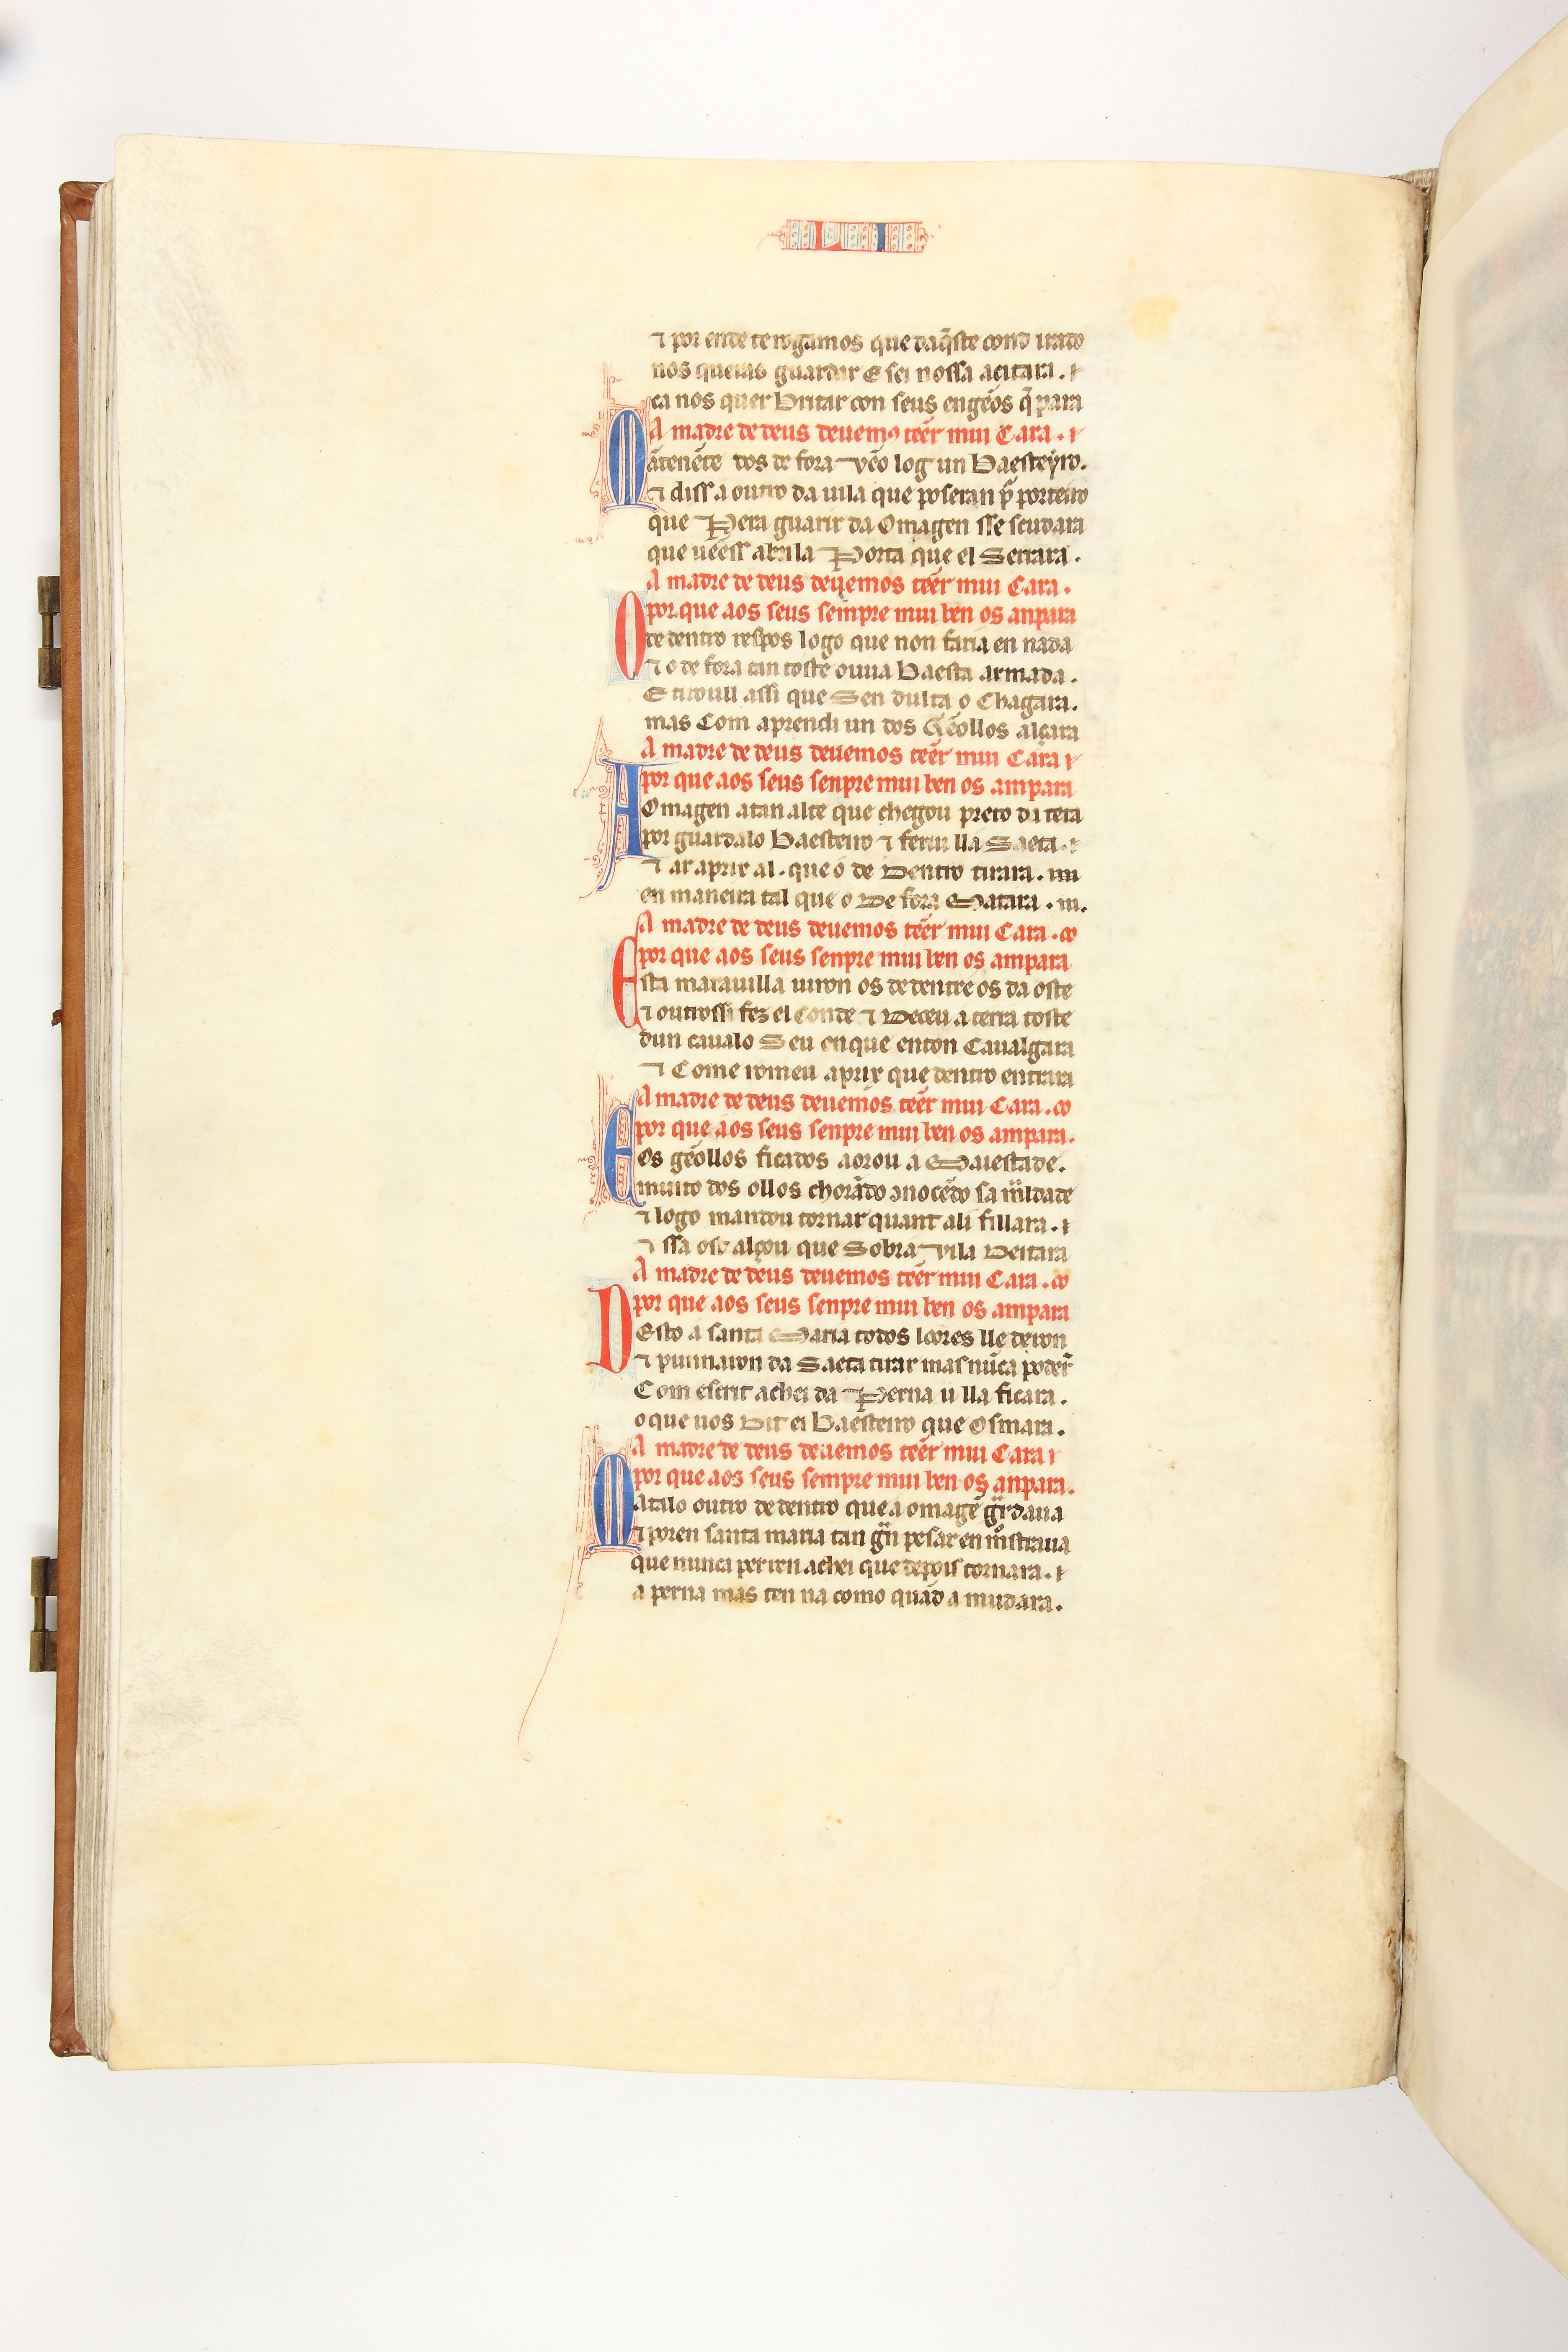 LI
⁊ por ende te rogamos que daq̃ste cond irado
nos queiras guardar E sei nossa acitara.
ca nos quer britar con seus engẽos q̃ para
A madre de deus deuemꝯ tẽer mui Cara.
Mãtenẽte dos de fora vẽo log un baesteyro.
⁊ diss a outro da uila que poseran p̃ porteiro
que Pera guarir da Omagen sse scudara
que uẽess abrila Porta que el Serrara.
A madre de deus deuemos tẽer mui Cara.
por que aos seus sempre mui ben os anpara
O de dentro respos logo que non faria en nada
⁊ o de fora tan toste ouua baesta armada.
E tiroull assi que Sen dulta o Chagara.
mas Com aprendi un dos Gẽollos alçara
A madre de deus deuemos tẽer mui Cara
por que aos seus senpre mui ben os ampara
A Omagen atan alte que chegou preto da teta
por guardalo baesteiro ⁊ feriu lla Saeta.
⁊ ar aprix al. que o de Dentro tirara.
en maneira tal que o De fora Matara.
A madre de deus deuemos tẽer mui Cara.
por que aos seus senpre mui ben os ampara
Esta marauilla uiron os de dentr e os da oste
⁊ outrossi fez el conde ⁊ Deceu a terra toste
dun caualo Seu en que enton Caualgara
⁊ Come romeu aprix que dentro entrara
A madre de deus deuemos tẽer mui Cara.
por que aos seus senpre mui ben os ampara.
E os gẽollos ficados aorou a Maiestade.
muito dos ollos chorãdo ɔnocẽdo sa mĩldade
⁊ logo mandou tornar quant ali fillara.
⁊ ssa ost alçou que Sobra vila Deitara
A madre de deus deuemos tẽer mui Cara.
por que aos seus senpre mui ben os ampara
D Esto a santa Maria todos loores lle deron
⁊ punnaron da Saeta tirar mas nũca poder̃
Com escrit achei da Perna u lla ficara.
o que uos Dit ei baesteiro que Osmara.
A madre de deus deuemos tẽer mui Cara
por que aos seus sempre mui ben os anpara.
Matalo outro de dentro que a omagẽ gardaua
⁊ poren santa maria tan grã pesar en mostraua
que nunca per ren achei que depois tornara.
a perna mas ten na como quãd a mudara.